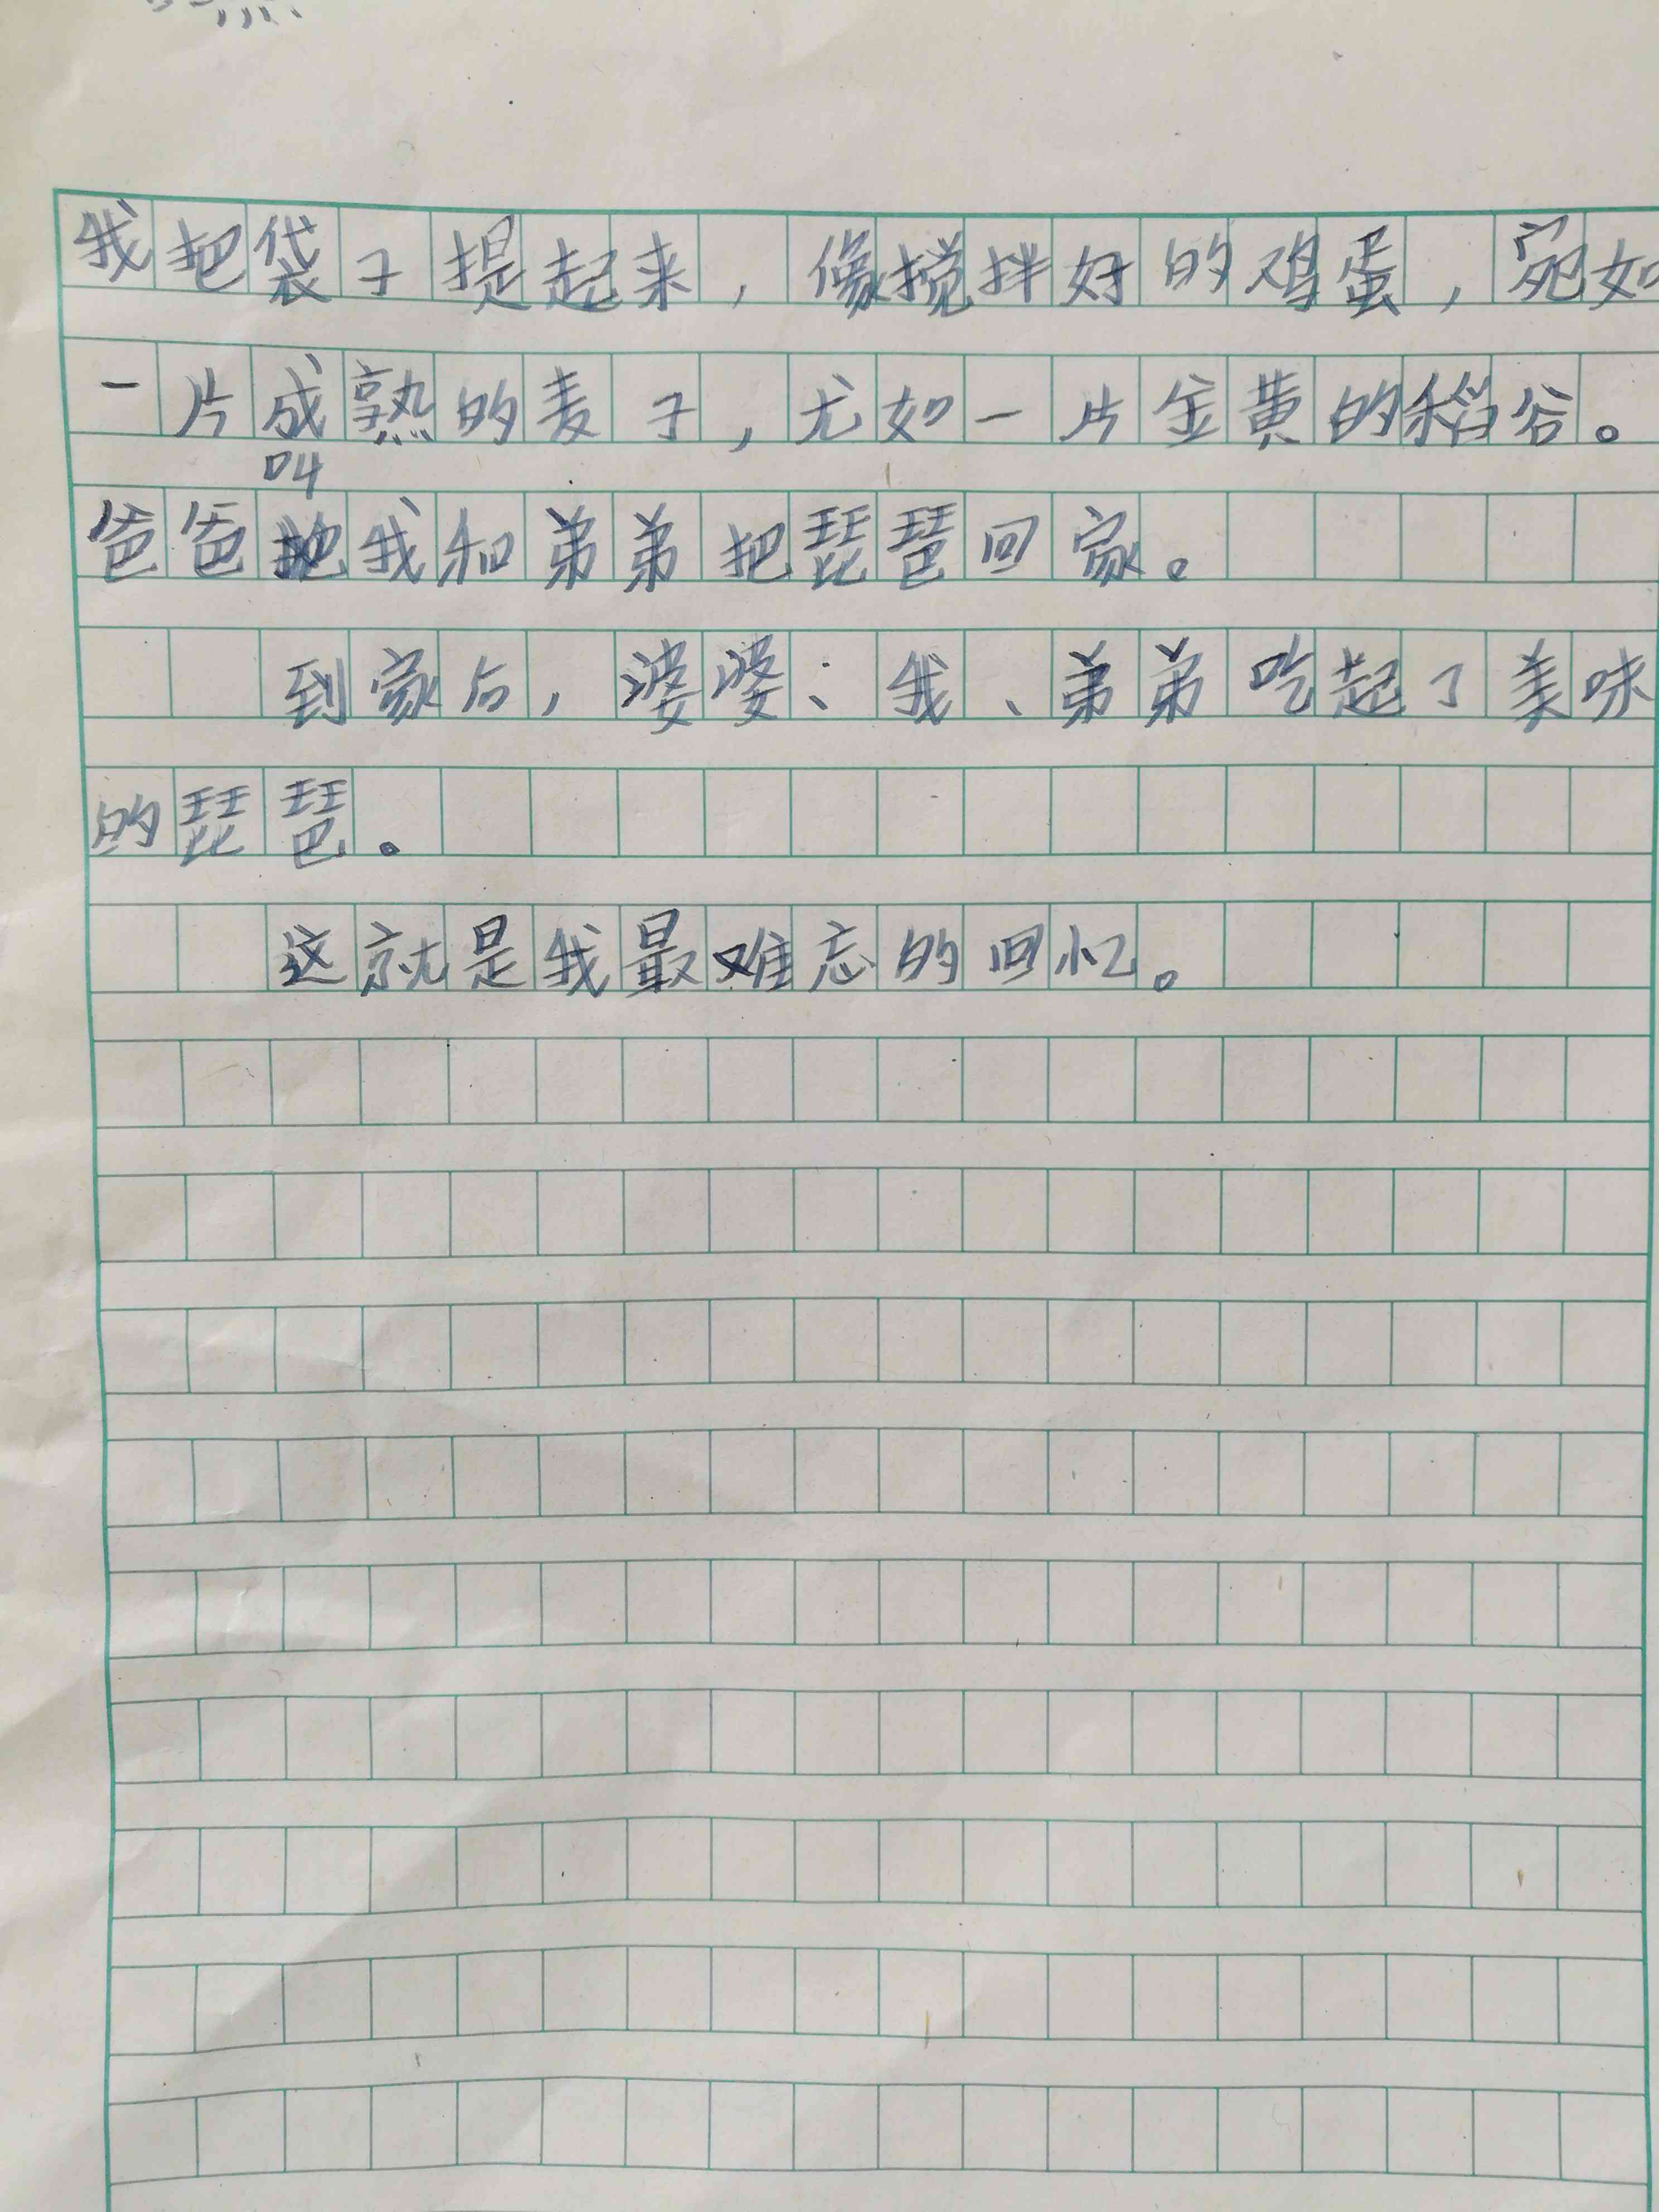 我把袋子提起来，像搅拌好的鸡蛋，宛如
一片成熟的麦子，尤如一片金黄的稻谷。
叫
爸爸我和弟弟把琵琶回家。
到家后，婆婆、我、弟弟吃起了美味
的琵琶。
这就是我最难忘的回忆。